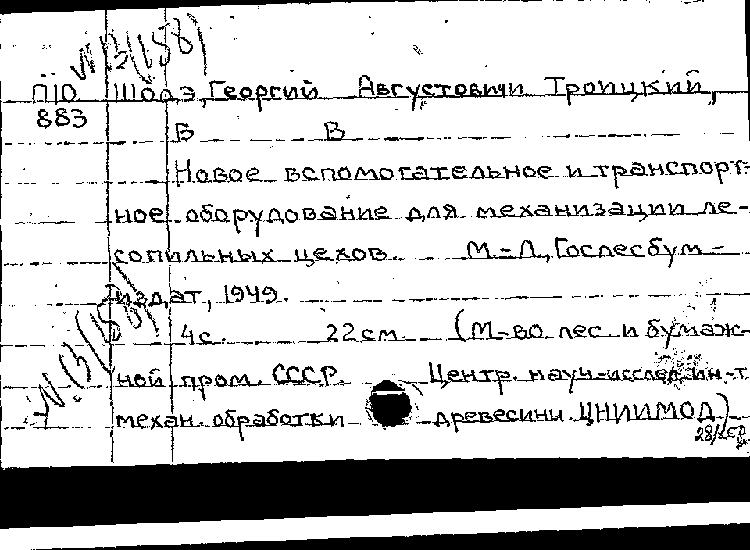 N 13(158)
П10 Шодэ, Георгий Августович Троицкий,
883
В В
Новое вспомогательное и транспорт-
ное оборудование для механизации ле-
сопильных цехов. М-Л, Гослесбум-
издат, 1949.
4с. 22см (М-во лес. и бумаж-
ной пром. СССР. Центр. науч-исслед. ин-т
механ. обработки древесини. ЦНИИМОД)
N. 13(158)